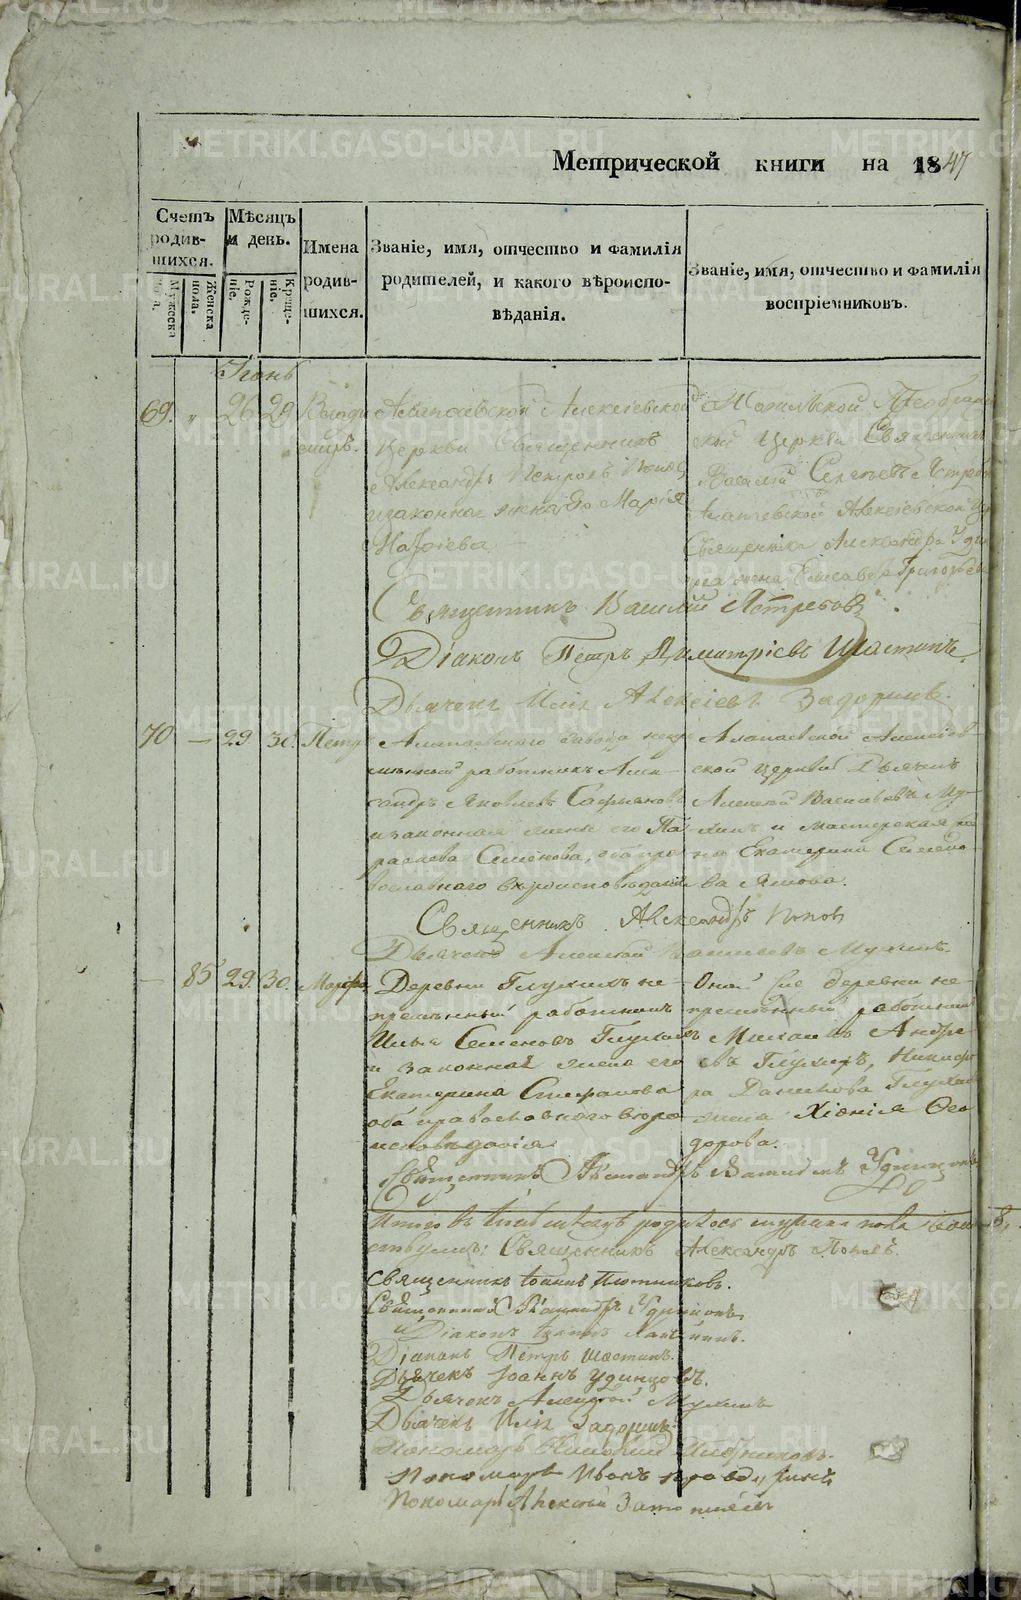 Метрической книги на 1847
Счетъ родив-шихся.
Мужеска пола.
Женска пола.
Мѣсяцъ и день.
Рожде-ніе.
Креще-ніе.
Имена родив-шихся.
Званіе, имя, отчество и фамилія
родителей, и какого вѣроиспо-
вѣданія.
Званіе, имя, отчество и фамилія
воспріемниковъ.
Іюнь
69. " 26 29 Влади
миръ.
Алапаевской Алексіевской
церкви Священникъ
Александръ Петровъ Поповъ
и законная жена его Марія
Преображен
ской церкви Священникъ
Василій Сергіевъ Ястреб
Алапаевской Алексіевской Цер
Священника Александра Удин
жена Елисавета Григорьева
Священникъ Василій Ястребовъ.
Діаконъ Петръ Димитріевъ Шастинъ.
Дьячекъ Илія Алексіевъ Задоринъ.
70 — 29 30. Петръ
Алапаевскаго завода непре
мѣнный работникъ Алек-
сандръ Яковлевъ Сафьановъ
и законная жена его Па-
раскева Семенова, оба пра-
вославнаго вѣроисповѣданія
Алапаевской Алексіев-
ской церкви Дьячекъ
Алексѣй Васильевъ Му-
хинъ и мастерская же
на Екатерина Семено-
ва
Священникъ Александръ Поповъ
Дьячекъ Алексѣй Васильевъ Мухинъ.
— 85 29. 30. Марфа
Деревни Глухихъ не-
премѣнный работникъ
Илья Семеновъ Глухихъ
и законная жена его
Екатерина Стефанова
оба православнаго вѣро
исповѣданія.
Оной же деревни не-
премѣнный работникъ
Михаилъ Андре
евъ Глухихъ, Никифо
ра Данилова Глухихъ
жена Хіонія Ѳео
дорова.
Священникъ Александръ Удинцовъ
Итого въ Іюнѣ мѣсяцѣ родилось мужска пола
Священникъ Александръ Поповъ.
Священникъ Іоаннъ Плотниковъ.
Священникъ Александръ Удинцовъ
Діаконъ
Діаконъ Петръ Шастинъ.
Дьячекъ Іоаннъ Удинцовъ.
Дьячекъ Алексѣй Мухинъ
Дьячекъ Илія Задоринъ
Пономарь
Пономарь Иванъ
Пономарь Алексѣй
METRIKI.GASO-URAL.RU